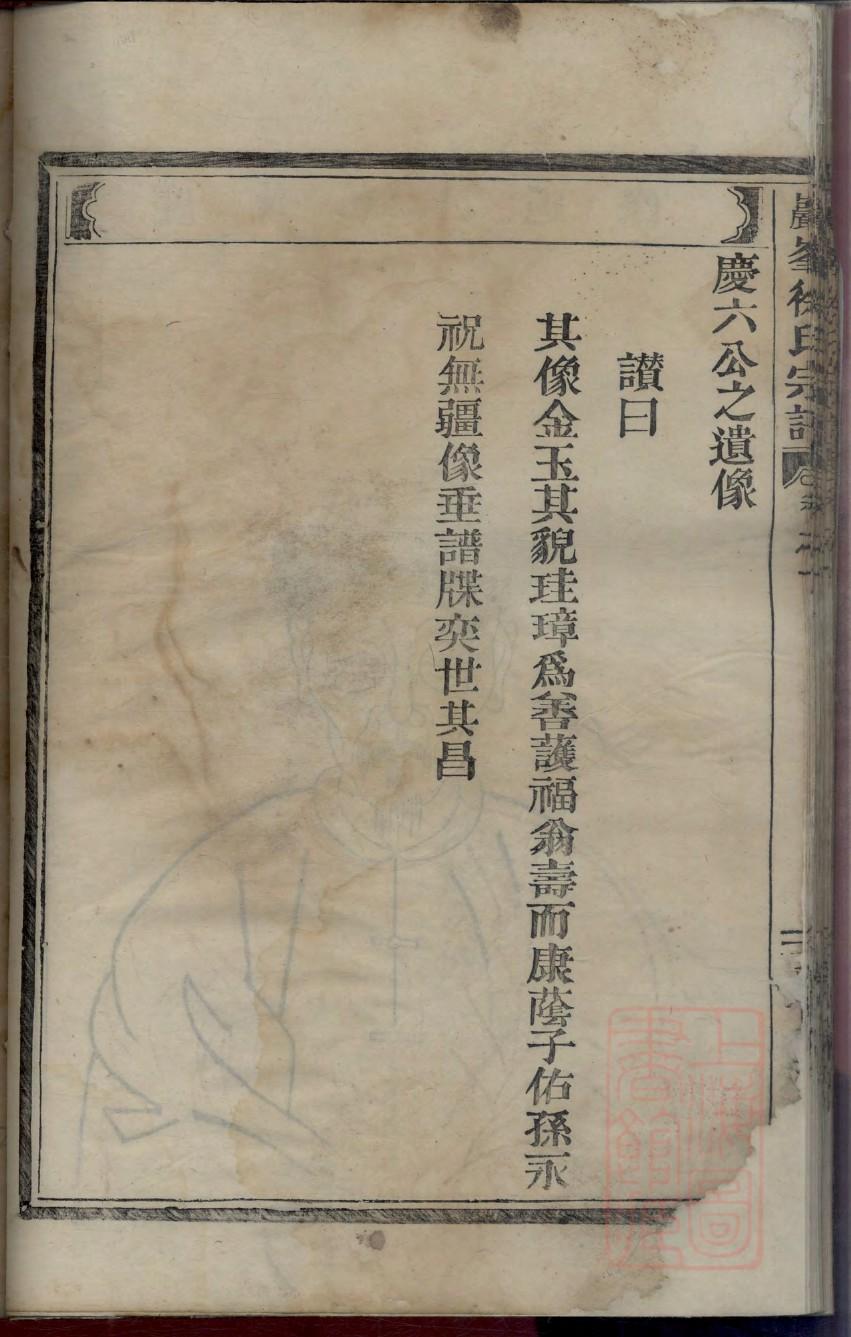 慶六公之遺像
讃曰
其像金玉其貌珪璋爲善護福翁壽而康蔭子佑孫永
祝無疆像垂譜牒奕世其昌
巖峯徐氏宗譜